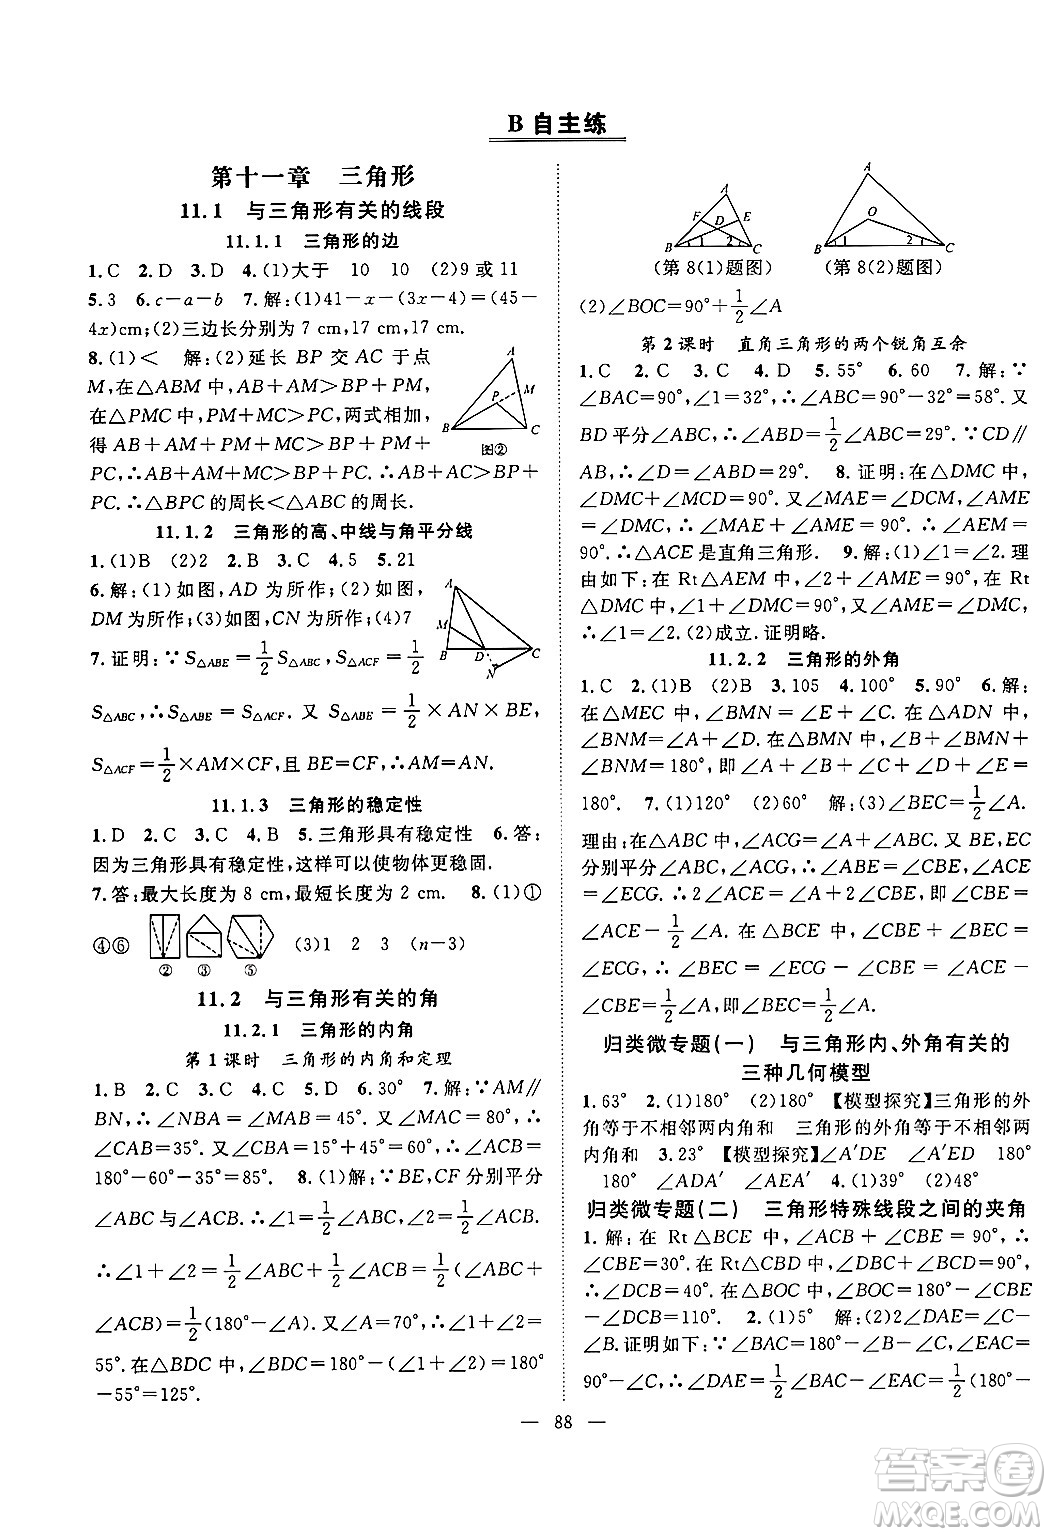 B 自主练
第十一章 三角形
11.1 与三角形有关的线段
11.1.1 三角形的边
1.C 2.D 3.D 4.(1)大于 10 10 (2)9 或 11
5.3 6.c-a-b 7.解:(1)41-x-(3x-4)=(45-
4x)cm;(2)三边长分别为 7 cm,17 cm,17 cm.
8.(1)< 解:(2)延长 BP 交 AC 于点
M,在△ABM 中,AB+AM>BP+PM,
在△PMC 中,PM+MC>PC,两式相加,
得 AB+AM+PM+MC>BP+PM+
PC,∴AB+AM+MC>BP+PC,∴AB+AC>BP+
PC.∴△BPC 的周长<△ABC 的周长.
A
M
P
B
C
图②
11.1.2 三角形的高、中线与角平分线
1.(1)B (2)2 2.B 3.C 4.5 5.21
6.解:(1)如图,AD 为所作;(2)如图,
DM 为所作;(3)如图,CN 为所作;(4)7
7.证明:∵S△ABE=1/2 S△ABC,S△ACF=1/2
S△ABC,∴S△ABE=S△ACF. 又 S△ABE=1/2×AN×BE,
S△ACF=1/2×AM×CF,且 BE=CF,∴AM=AN.
A
M
B
D
C
N
11.1.3 三角形的稳定性
1.D 2.C 3.C 4.B 5.三角形具有稳定性 6.答:
因为三角形具有稳定性,这样可以使物体更稳固.
7.答:最大长度为 8 cm,最短长度为 2 cm. 8.(1)①
④⑥ (3)1 2 3 (n-3)
② ③ ⑤
11.2 与三角形有关的角
11.2.1 三角形的内角
第 1 课时 三角形的内角和定理
1.B 2.C 3.C 4.C 5.D 6.30° 7.解:∵AM∥
BN,∴∠NBA=∠MAB=45°. ∵∠MAC=80°,∴
∠CAB=35°. 又∠ABC=15°+45°=60°,∴∠ACB=
180°-60°-35°=85°. 8.(1)解:∵BE,CF 分别平分
∠ABC 与∠ACB,∴∠1=1/2∠ABC,∠2=1/2∠ACB.
∴∠1+∠2=1/2∠ABC+1/2∠ACB=1/2(∠ABC+
∠ACB)=1/2(180°-∠A). ∵∠A=70°,∴∠1+∠2=
55°. 在△BDC 中,∠BDC=180°-(∠1+∠2)=180°
-55°=125°.
A
F
D
E
1
2
B
C
(第 8(1)题图)
A
O
1
2
B
C
(第 8(2)题图)
(2)∠BOC=90°+1/2∠A
第 2 课时 直角三角形的两个锐角互余
1.C 2.C 3.C 4.D 5.55° 6.60 7.解:∵
∠BAC=90°,∠1=32°,∴∠ABC=90°-32°=58°. 又
BD 平分∠ABC,∴∠ABD=1/2∠ABC=29°. ∵CD∥
AB,∴∠D=∠ABD=29°. 8.证明:在△DMC 中,
∠DMC+∠MCD=90°. 又∠MAE=∠DCM,∠AME
=∠DMC,∴∠MAE+∠AME=90°,∴∠AEM=
90°.∴△ACE 是直角三角形. 9.解:(1)∠1=∠2.理
由如下:在 Rt△AEM 中,∠2+∠AME=90°,在 Rt
△DMC 中,∠1+∠DMC=90°,又∠AME=∠DMC,
∴∠1=∠2.(2)成立.证明略.
11.2.2 三角形的外角
1.C 2.(1)B (2)B 3.105 4.100° 5.90° 6.解:
在△MEC 中,∠BMN=∠E+∠C. 在△ADN 中,
∠BNM=∠A+∠D. 在△BMN 中,∠B+∠BMN+
∠BNM=180°,∴∠B+∠A+∠D+∠E+∠C=
180°. 7.(1)120° (2)50° 解:(3)∠BEC=1/2∠A.
理由:在△ABC 中,∠ACG=∠A+∠ABC. 又 BE,EC
分别平分∠ABC,∠ACG,∴∠ABE=∠CBE,∠ACE
=∠ECG.∴2∠ACE=∠A+2∠CBE,即∠CBE=
∠ACE-1/2∠A. 在△BCE 中,∠BEC+∠CBE=
∠ECG,∴∠BEC=∠ECG-∠CBE=∠ACE-
∠CBE=1/2∠A,即∠BEC=1/2∠A.
归类微专题(一) 与三角形内、外角有关的
三种几何模型
1.63° 2.(1)180° (2)180°【模型探究】三角形的外
角等于不相邻两内角和 三角形的外角等于不相邻两
内角和 3.23°【模型探究】∠A′DE ∠A′ED 180°
180° ∠ADA′ ∠AEA′ 4.(1)39° (2)48°
归类微专题(二) 三角形特殊线段之间的夹角
1.解:在 Rt△BCE 中,∠ACB+∠CBE=90°,∴
∠CBE=30°. 在 Rt△CBD 中,∠ABC+∠DCB=90°,
∴∠DCB=40°. 在△BOC 中,∠BOC=180°-∠CBE
-∠DCB=110°. 2.(1)5° 解:(2)2∠DAE=∠C-
∠B. 证明如下:∵∠BAC=180°-∠B-∠C,∠DAC=
90°-∠C,∴∠DAE=1/2∠BAC-∠EAC=1/2(180°-
— 88 —
答案圈
MXQE.COM